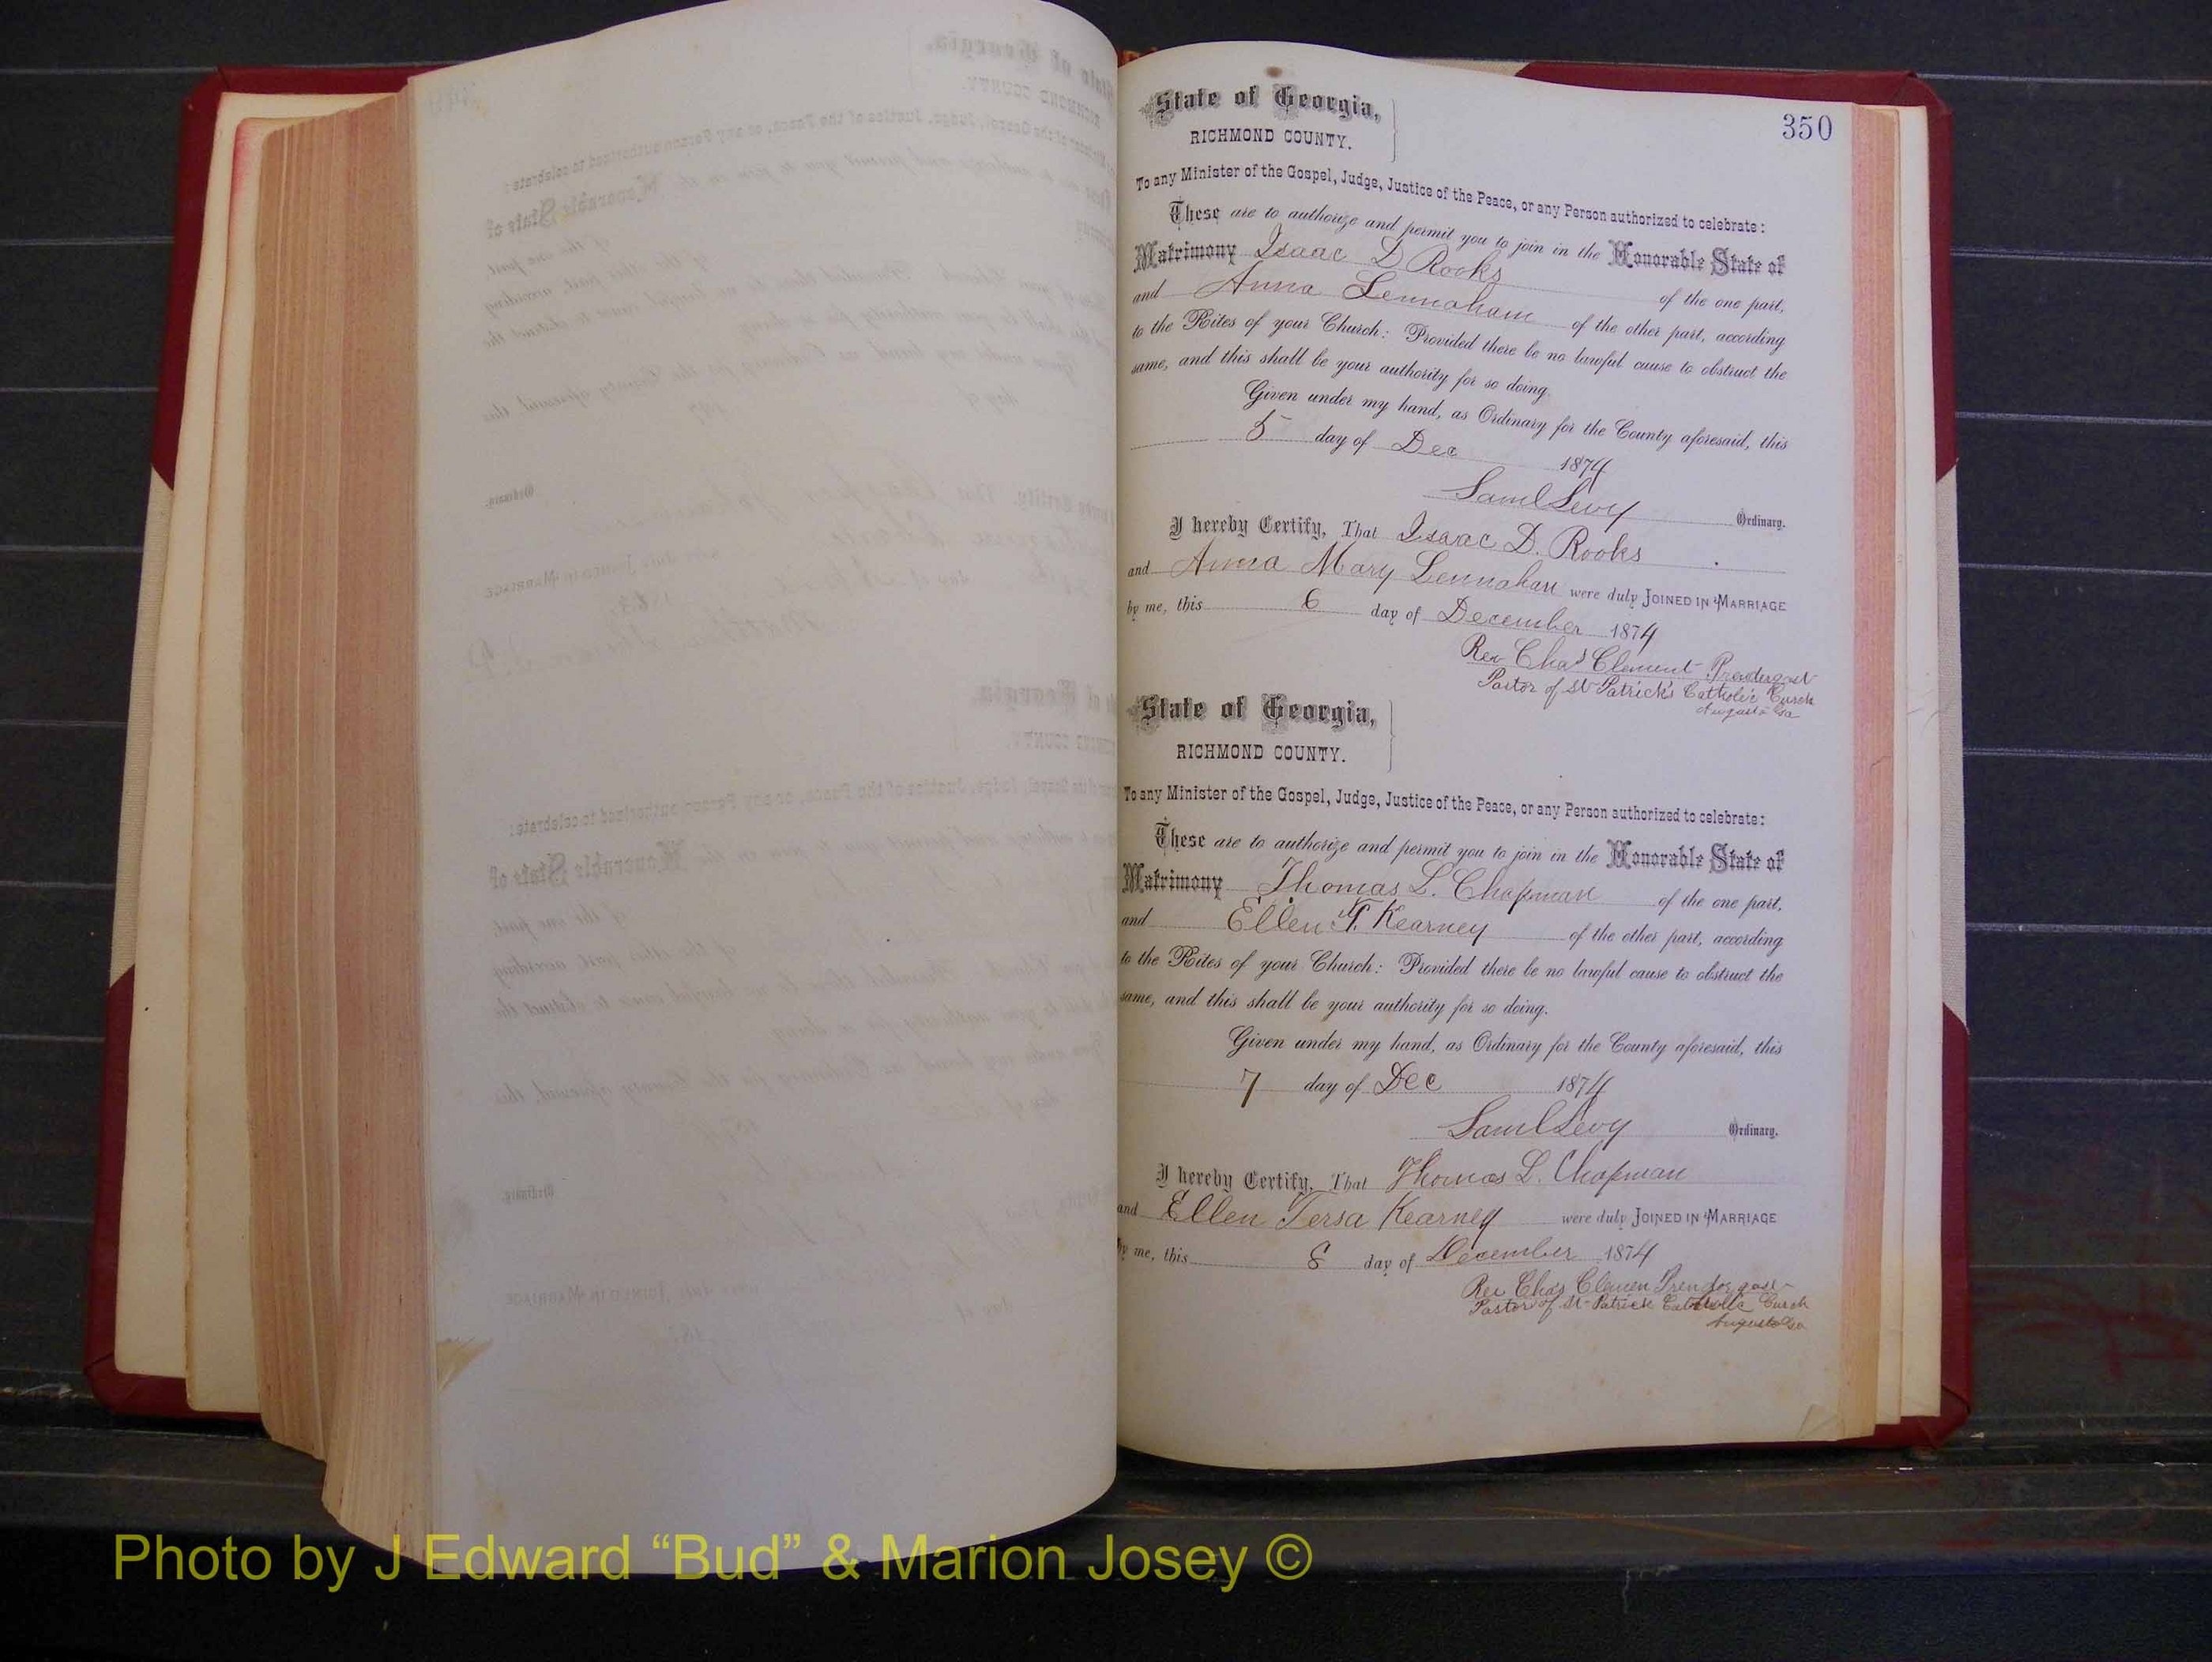 350
State of Georgia,
RICHMOND COUNTY.
To any Minister of the Gospel, Judge, Justice of the Peace, or any Person authorized to celebrate:
These are to authorize and permit you to join in the Honorable State of
Matrimony Isaac D Rooks of the one part,
and Anna Lennahan of the other part, according
to the Rites of your Church: Provided there be no lawful cause to obstruct the
same, and this shall be your authority for so doing.
Given under my hand, as Ordinary for the County aforesaid, this
5 day of Dec 1874
Saml Levy Ordinary.
I hereby Certify, That Isaac D. Rooks
and Anna Mary Lennahan were duly JOINED IN MARRIAGE
by me, this 6 day of December 1874
Rev Chas Clement Prendergast
Pastor of St Patrick's Catholic Curch
Augusta Ga
State of Georgia,
RICHMOND COUNTY.
To any Minister of the Gospel, Judge, Justice of the Peace, or any Person authorized to celebrate:
These are to authorize and permit you to join in the Honorable State of
Matrimony Thomas L. Chapman of the one part,
and Ellen T. Kearney of the other part, according
to the Rites of your Church: Provided there be no lawful cause to obstruct the
same, and this shall be your authority for so doing.
Given under my hand, as Ordinary for the County aforesaid, this
7 day of Dec 1874
Saml Levy Ordinary.
I hereby Certify, That Thomas L. Chapman
and Ellen Tersa Kearney were duly JOINED IN MARRIAGE
by me, this 8 day of December 1874
Rev Chas Clemen Prendergast
Pastor of St Patrick Catholic Curch
Augusta Ga
Photo by J Edward “Bud” & Marion Josey ©